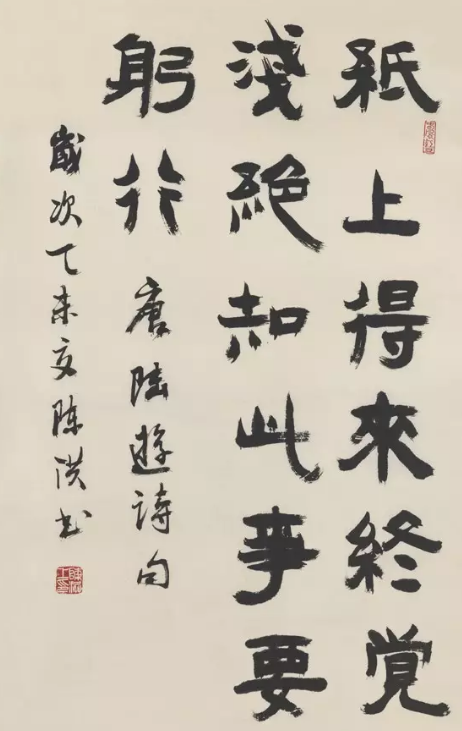 紙上得來終覚
淺絶知此事要
躬行 唐陸遊詩句
歲次乙未夏陳洪書